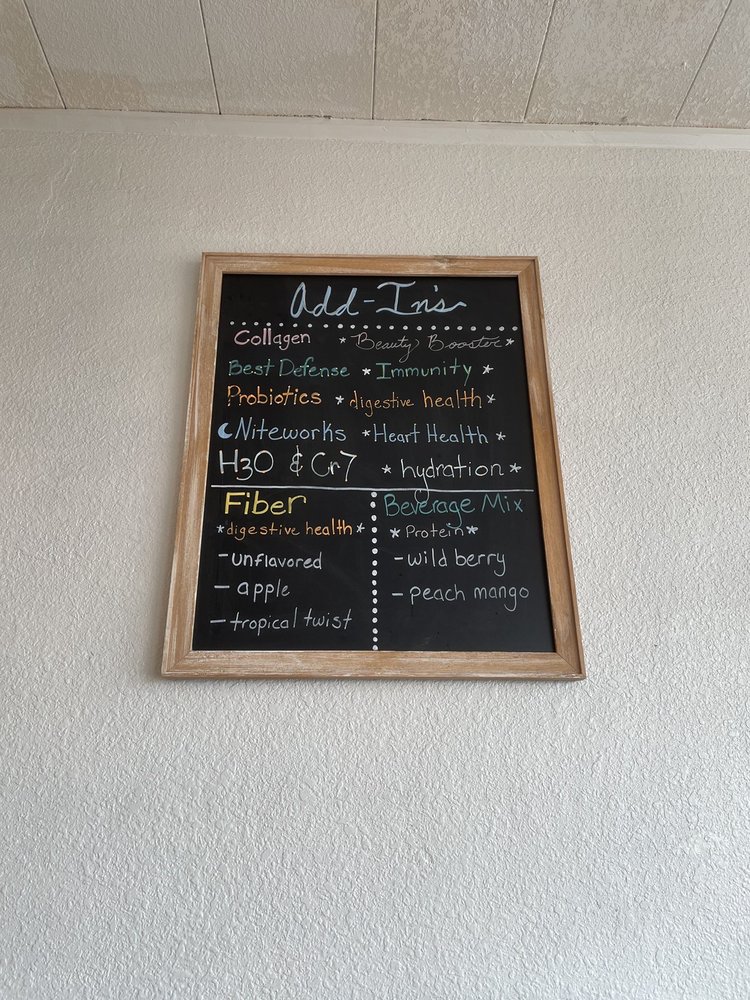 Add-In's
Collagen *Beauty Booster*
Best Defense *Immunity*
Probiotics *digestive health*
Niteworks *Heart Health*
H3O & Cr7 *hydration*
Fiber
*digestive health*
-unflavored
-apple
-tropical twist
Beverage Mix
*Protein*
-wild berry
-peach mango